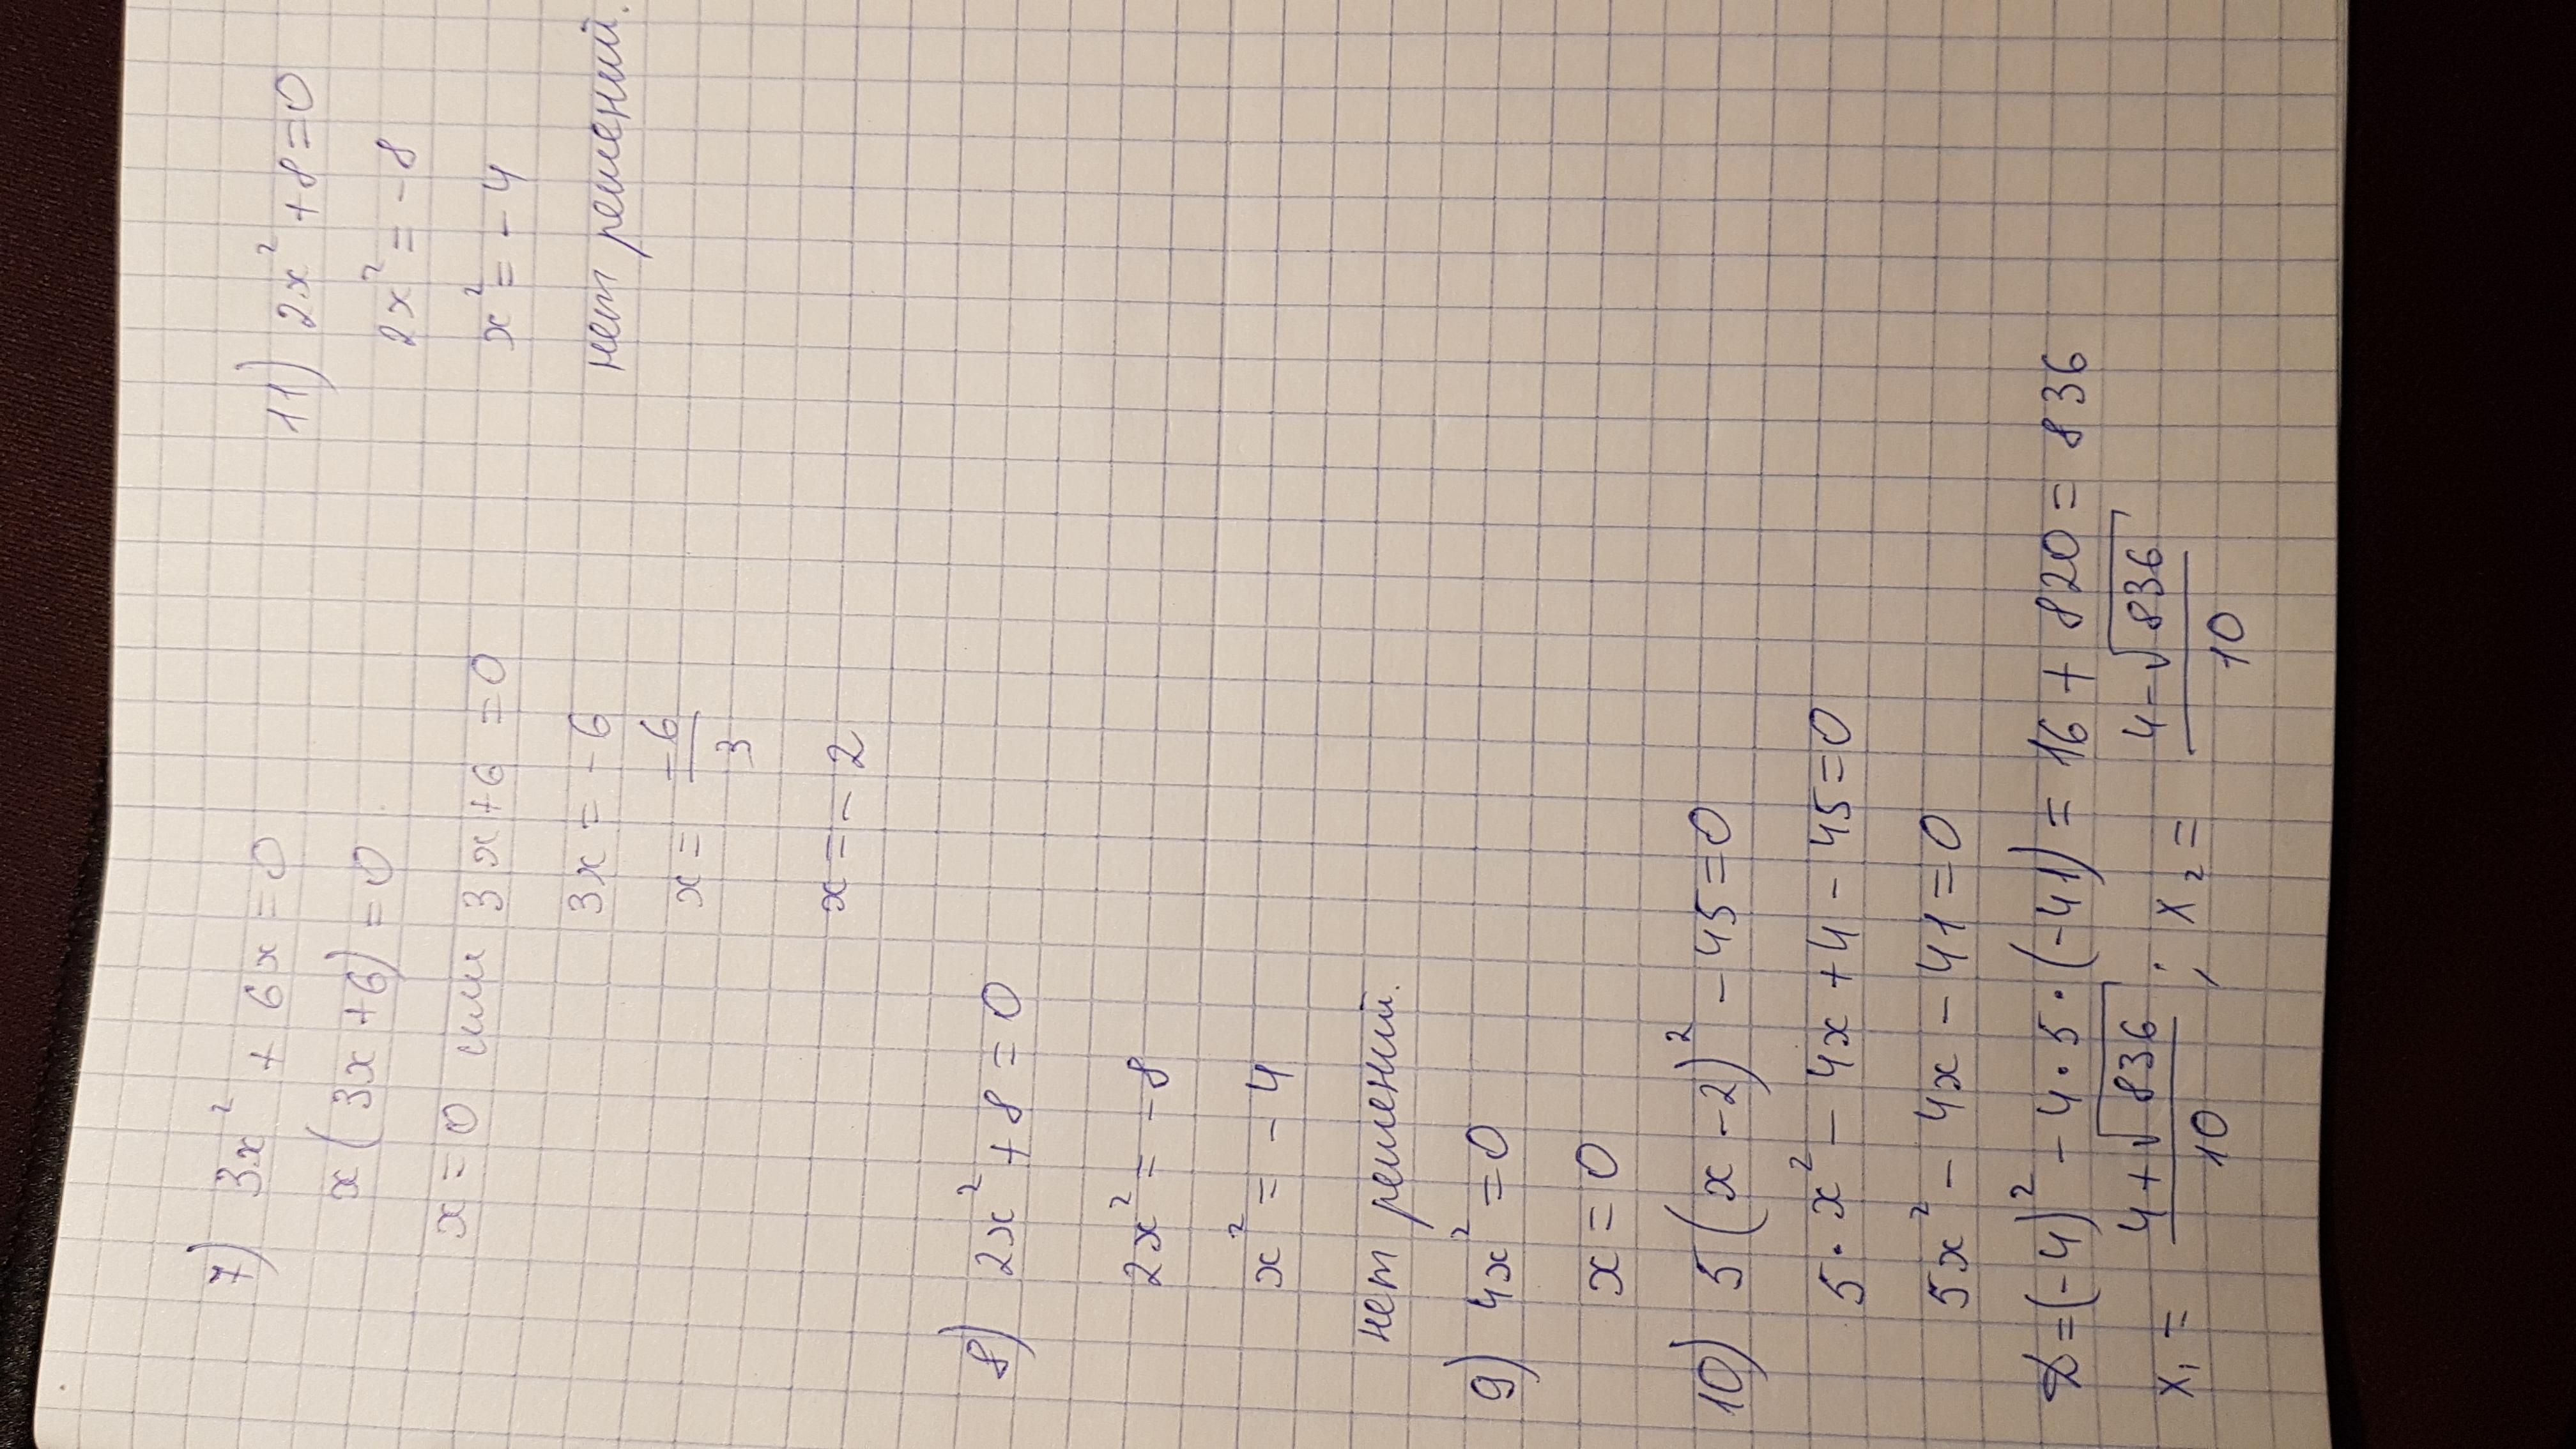 7) 3x² + 6x = 0
x(3x+6) = 0
x = 0 или 3x+6 = 0
3x = -6
x = -6/3
x = -2
8) 2x² + 8 = 0
2x² = -8
x² = -4
нет решений.
9) 4x² = 0
x = 0
10) 5(x-2)² - 45 = 0
5·x² - 4x + 4 - 45 = 0
5x² - 4x - 41 = 0
D = (-4)² - 4·5·(-41) = 16 + 820 = 836
x₁ = (4+√836)/10 ; x₂ = (4-√836)/10
11) 2x² + 8 = 0
2x² = -8
x² = -4
нет решений.